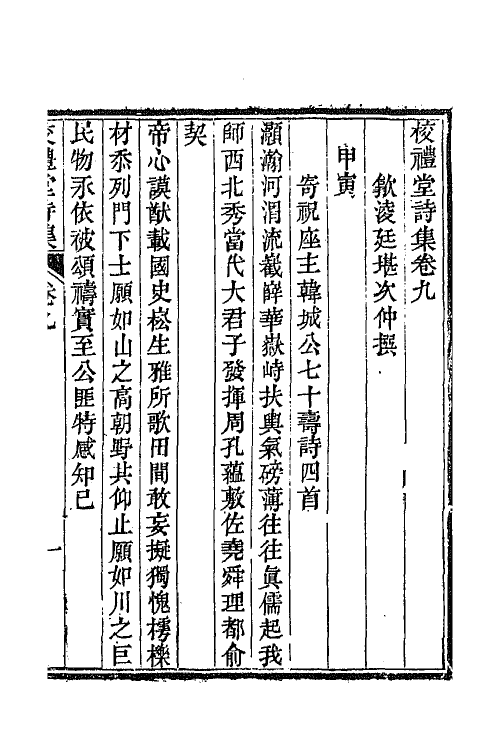 校禮堂詩集卷九
歙淩廷堪次仲撰
甲寅
寄祝座主韓城公七十壽詩四首
灝瀚河渭流巀嶭華嶽峙扶輿氣磅薄往往眞儒起我
師西北秀當代大君子發揮周孔蘊敷佐堯舜理都俞
契
帝心謨猷載國史崧生雅所歌田間敢妄擬獨愧樗櫟
材忝列門下士願如山之高朝野共仰止願如川之巨
民物永依被頌禱實至公匪特感知已
校禮堂詩集 卷九 一